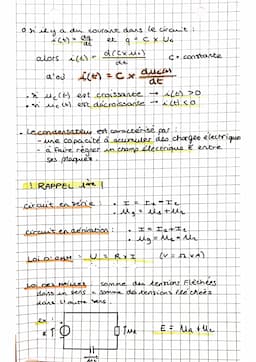 o s'il y a du courant dans le circuit :
i(t) = dq/dt et q = C × Uc
alors i(t) = d(C × Uc)/dt C = constante
d'où i(t) = C × duc(t)/dt
• si uc(t) est croissante → i(t) > 0
• si uc(t) est décroissante → i(t) < 0
• Le condensateur est caractérisé par :
- une capacité à accumuler des charges électriques
- à faire régner un champ électrique E entre
ses plaques.
! RAPPEL 1ère !
circuit en série : • I = I1 = I2
• Ug = U1 + U2
circuit en dérivation : • I = I1 + I2
• Ug = U1 = U2
Loi d'ohm : U = R × I (V = Ω × A)
Loi des mailles somme des tensions fléchées
dans un sens = somme des tensions fléchées
dans l'autre sens.
Ex :
E
E = U1 + U2